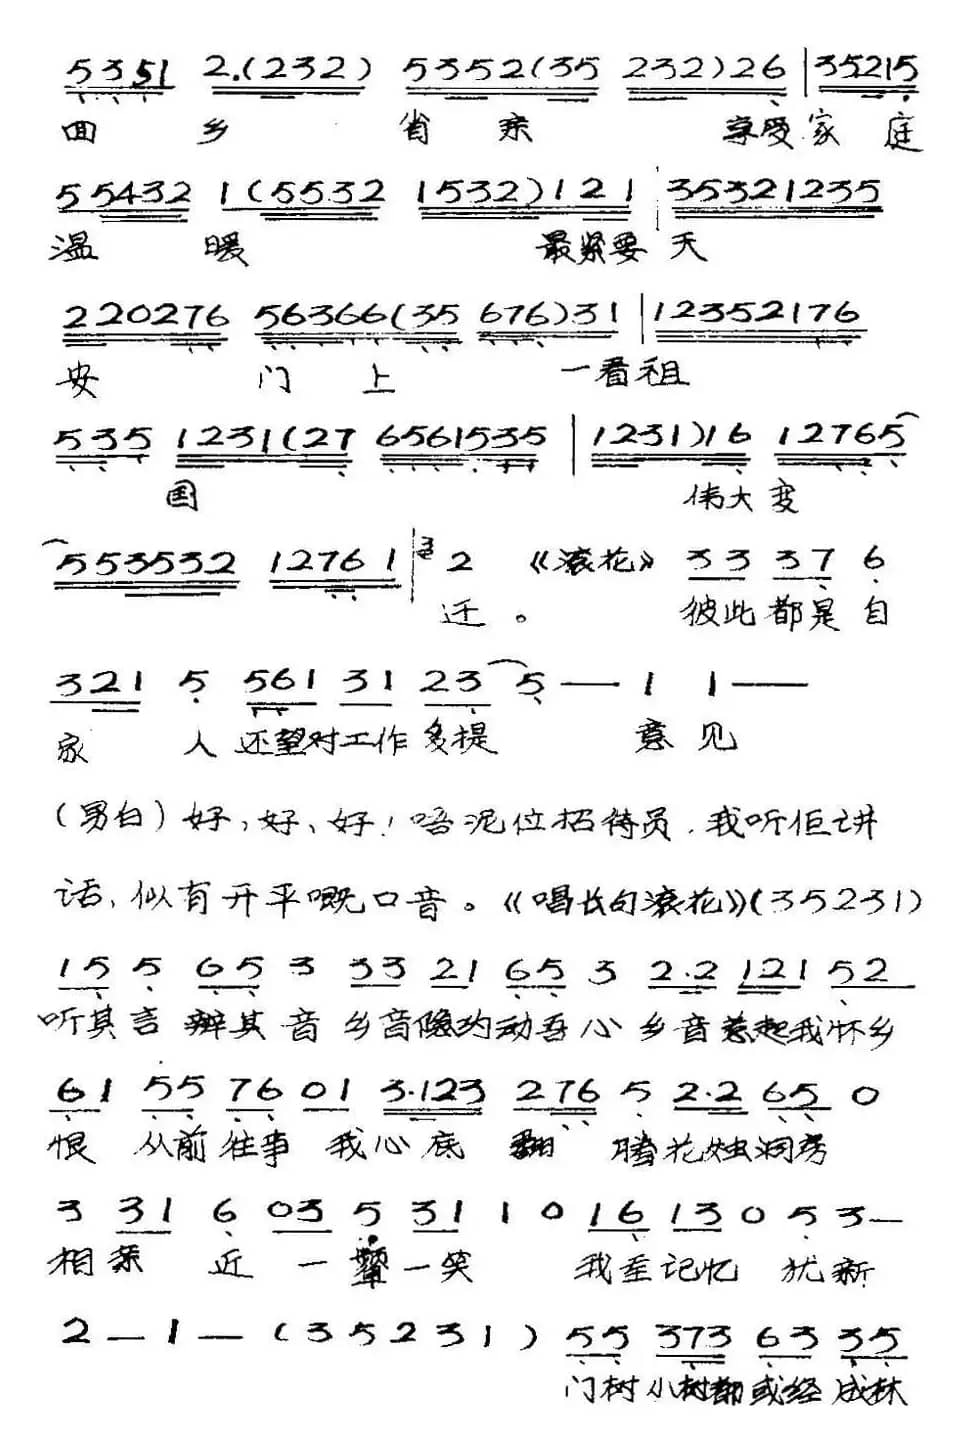 5351 2.(232) 5352(35 232)26 | 35215
回 乡 省 亲 享受家 庭
55432 1(5532 1532)121 | 35321235
温 暖 最紧要 天
220276 56366(35 676)31 | 12352176
安 门 上 一看祖
535 1231(27 6561535 | 1231)16 12765
国 伟大变
553532 12761 | 3 2 《滚花》 33 37 6
迁。 彼此都是自
321 5 561 31 23 5 — 1 1 —
家 人 还望对工作多提 意见
(男白)好,好、好!唔泥位招待员,我听佢讲
话,似有开平嘅口音。《唱长句滚花》(35231)
15 5 65 3 33 21 65 3 2·2 121 52
听其言 辨其音 乡音隐约动吾心 乡音惹起我怀乡
61 55 76 01 3·123 276 5 2·2 65 0
恨 从前往事 我心底 翻 腾花烛洞房
3 31 6 03 5 31 1 0 16 13 0 5 3—
相亲 近 一颦一笑 我至记忆 犹新
2 — 1 — (35231) 55 373 63 35
门树小树都或经成林